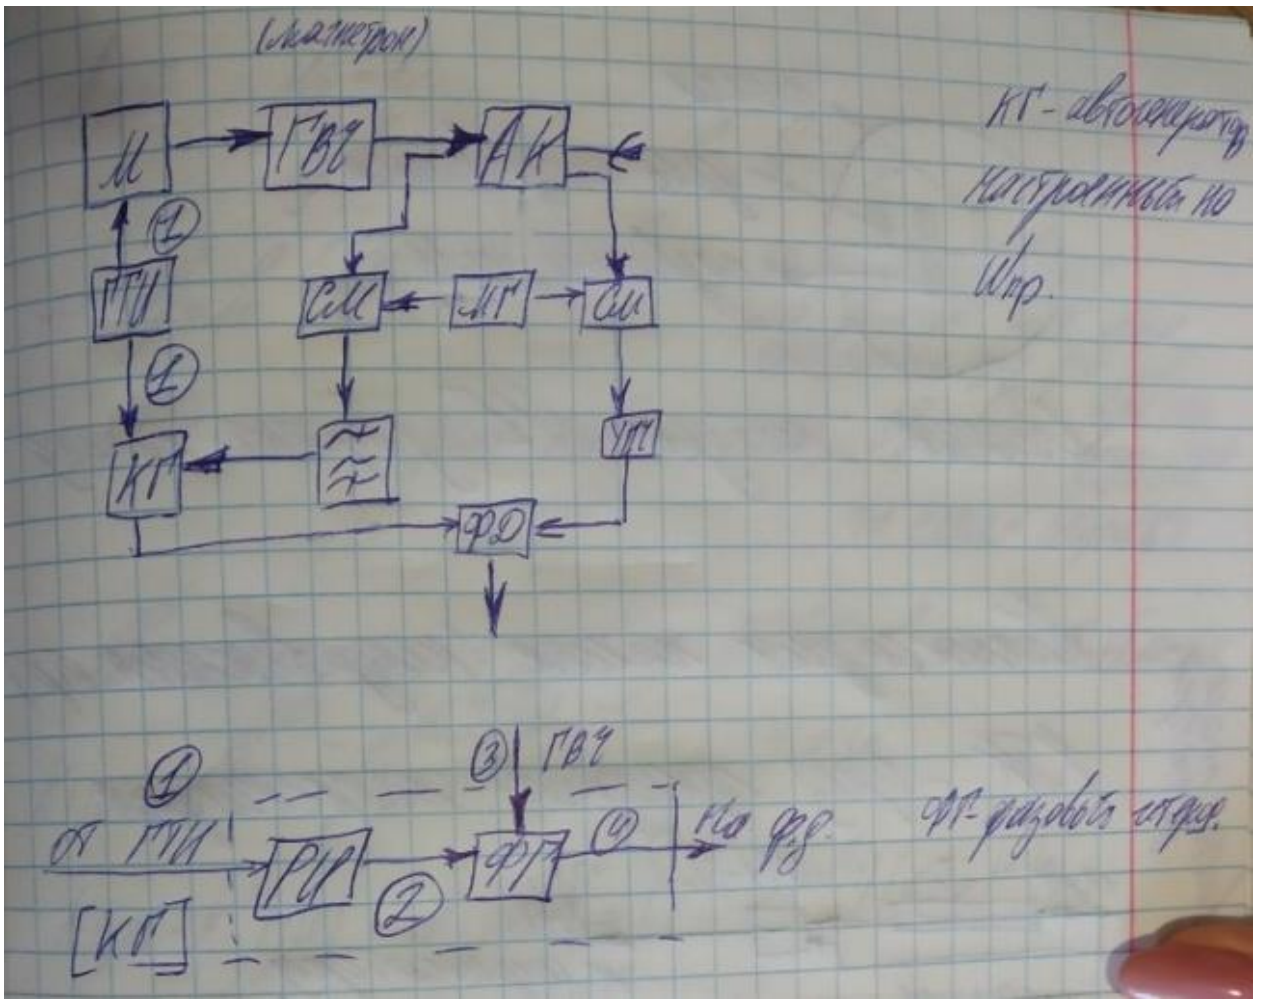 (магнетрон)
М ГВЧ АК
КГ - автогенератор
настроенный на
Wпр.
1
ГТИ СМ МГ СМ
1
КГ УПЧ
ФД
3 ГВЧ
1
от ГТИ РЦР ФГ 4 на ф.д.
2
[КГ]